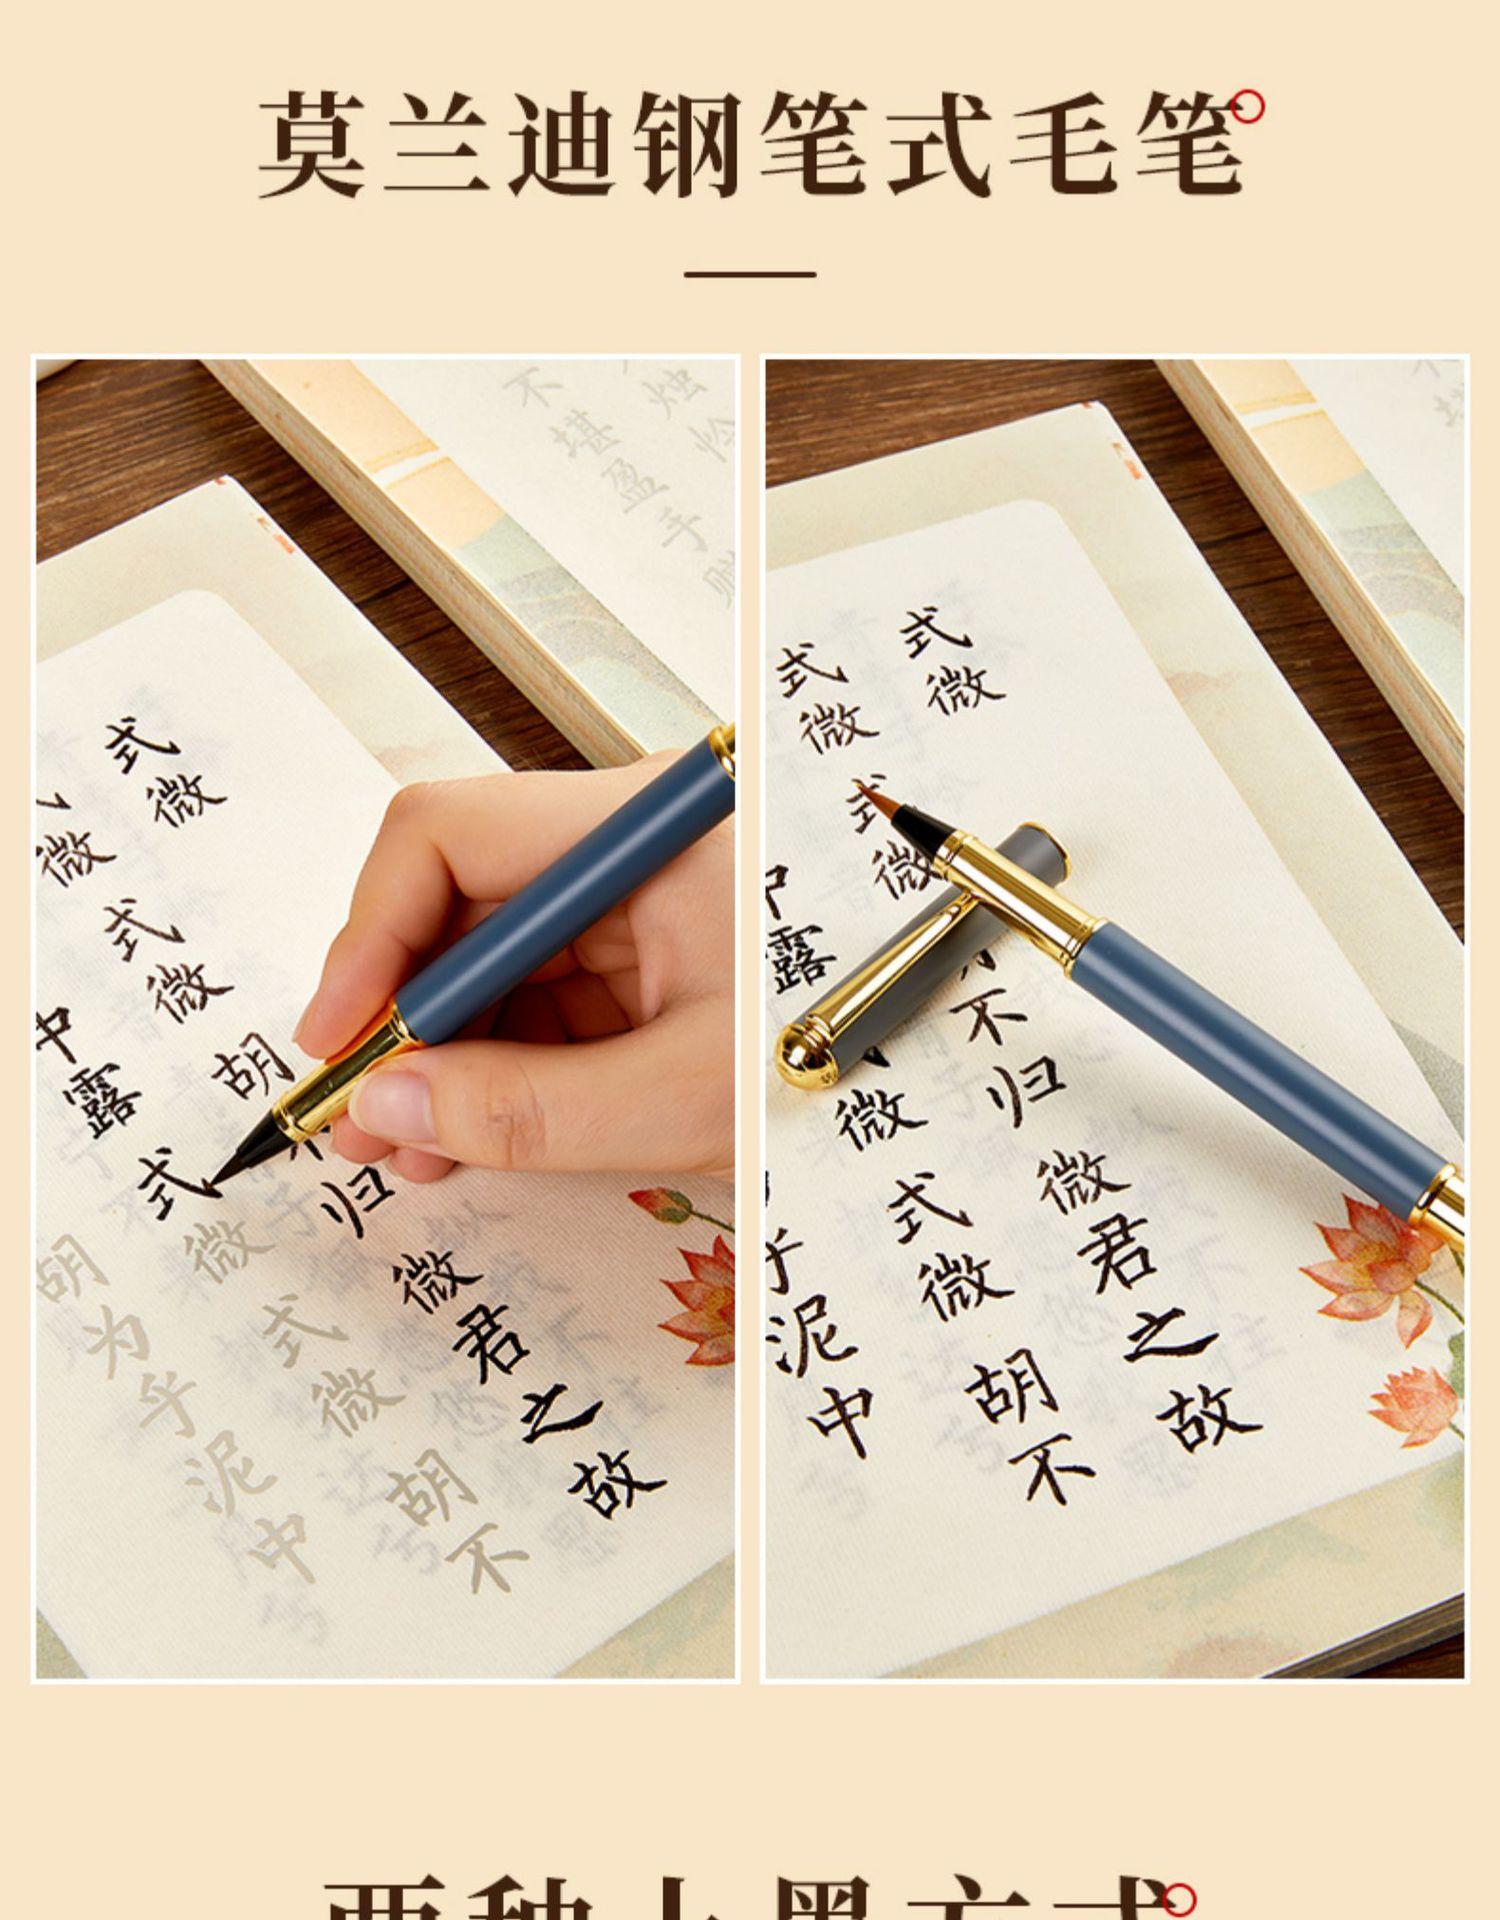 莫兰迪钢笔式毛笔
不堪盈手
烛
式微
式微
胡
归
微君之故
微
中露
式微
式微
胡不
胡为乎泥中
式微
式微
不归
微君之故
式微
露
微
式微
胡不
乎泥中
两种上墨方式